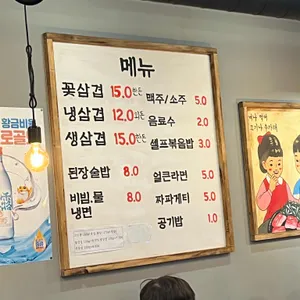 메뉴
꽃삼겹 15.0
냉삼겹 12.0
생삼겹 15.0
된장술밥 8.0
비빔.물
냉면 8.0
맥주/소주 5.0
음료수 2.0
셀프볶음밥 3.0
얼큰라면 5.0
짜파게티 5.0
공기밥 1.0
황금비율
로골